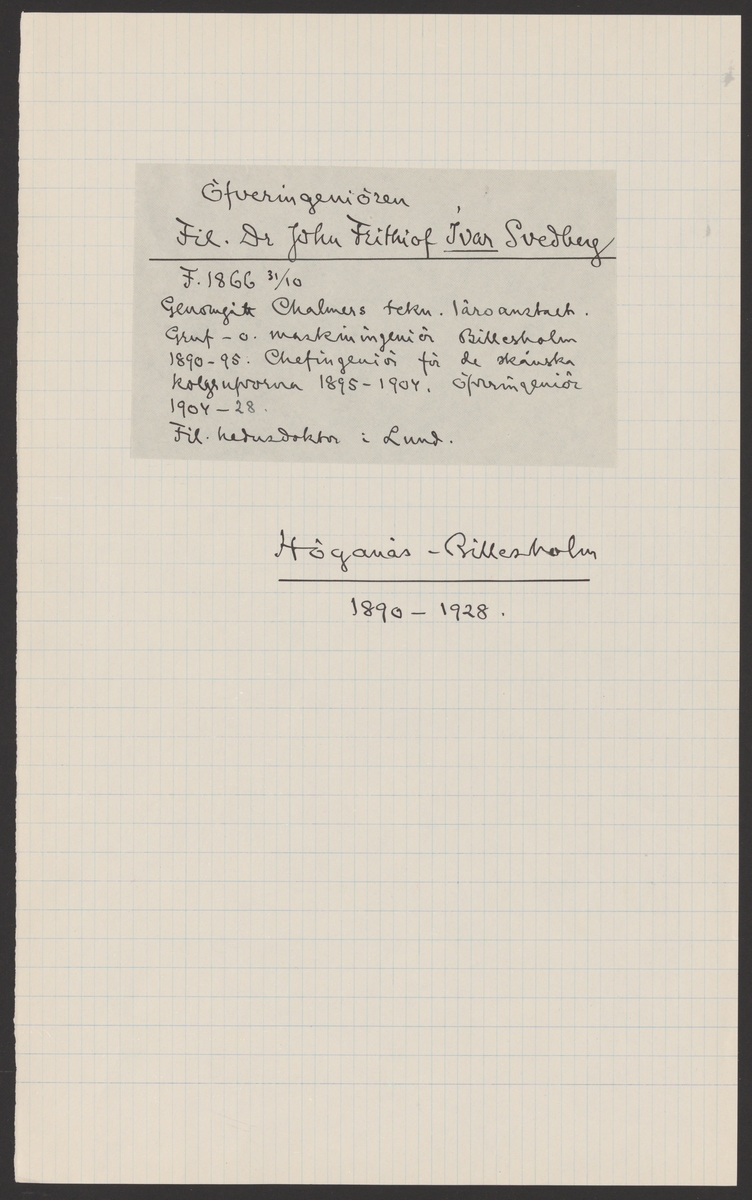 Öfveringeniören
Fil. Dr John Frithiof Ivar Svedberg
F. 1866 31/10
Genomgått Chalmers tekn. läroanstalt.
Gruf- o. maskiningeniör Billesholm
1890-95. Chefingeniör för de skånska
kolgrufvorna 1895-1904. Öfveringeniör
1904-28.
Fil. hedersdoktor i Lund.
Höganäs-Billesholm
1890-1928.